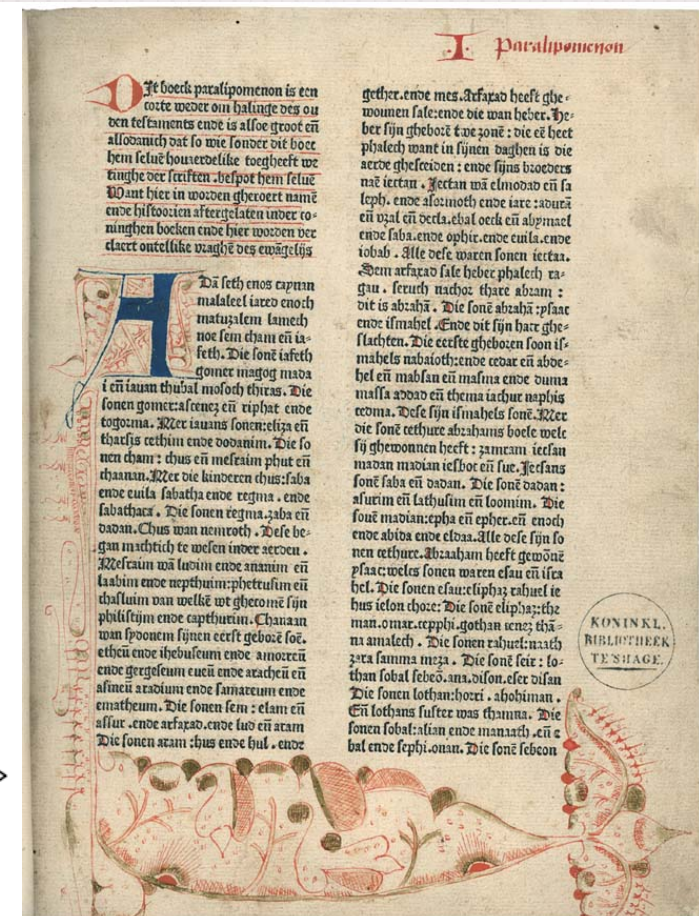 I Paralipomenon
Dit boeck paralipomenon is een
corte weder om halinge des ou
den testaments ende is alsoe groot eñ
alsodanich dat so wie sonder dit boec
hem seluē houaerdelike toegheeft we
tinghe der scriften .bespot hem seluē
Want hier in worden gheroert namē
ende histoorien aftergelaten inder co⸗
ninghen boeken ende hier worden ver
claert ontellike vraghē des ewāgelijs
ADā seth enos caynan
malaleel iared enoch
matuzalem lamech
noe sem cham eñ ia⸗
feth. Die sonē iafeth
gomer magog mada
i eñ iauan thubal mosoch thiras. Die
sonen gomer:ascenez eñ riphat ende
togorma. Mer iauans sonen:eliza eñ
tharsis cethim ende dodanim. Die so
nen cham : chus eñ mesraim phut eñ
chanaan. Mer die kinderen chus:saba
ende euila sabatha ende regma . ende
sabathaca . Die sonen regma.zaba eñ
dadan. Chus wan nemroth . Dese be⸗
gan machtich te wesen inder aerden .
Mesraim wā ludim ende ananim eñ
laabim ende nepthuim:phetrusim eñ
chasluim van welkē wt ghecomē sijn
philistijm ende capthurim. Chanaan
wan sydonem sijnen eerst geborē soē.
etheū ende ihebuseum ende amorreū
ende gergeseum eueū ende aracheū eñ
asineū aradium ende samareum ende
ematheum. Die sonen sem : elam eñ
assur .ende arfaxad.ende lud eñ aram
Die sonen aram :hus ende hul . ende
gether.ende mes. Arfaxad heeft ghe⸗
wonnen sale:ende die wan heber. He⸗
ber sijn gheborē twe zonē : die eē heet
phalech want in sijnen daghen is die
aerde ghesceiden : ende sijns broeders
naē iectan . Jectan wā elmodad eñ sa
leph. ende asormoth ende iare :adurā
eñ vzal eñ decla.ebal oeck eñ abymael
ende saba.ende ophir.ende euila.ende
iobab . Alle dese waren sonen iectaā.
Sem arfaxad sale heber phalech ra⸗
gau . seruch nachor thare abram :
dit is abrahā . Die sonē abrahā :ysaac
ende ismahel .Ende dit sijn haer ghe⸗
slachten. Die eerste gheboren soon is⸗
mahels nabaioth:ende cedar eñ abde⸗
hel eñ mabsan eñ masma ende duma
massa addad eñ thema iachur naphis
cedma. Dese sijn ismahels sonē. Mer
die sonē cethure abrahams boele welc
sij ghewonnen heeft : zamram iecsan
madan madian iesboc eñ sue. Jecsans
sonē saba eñ dadan . Die sonē dadan :
asurim eñ lathusim eñ loomim. Die
sonē madian:epha eñ epher.eñ enoch
ende abida ende eldaa. Alle dese sijn so
nen cethure. Abraaham heeft gewōnē
ysaac; welcs sonen waren esau eñ isra
hel. Die sonen esau:eliphaz rahuel ie
hus ielon chore: Die sonē eliphaz:the
man.omar.sepphi.gothan senez thā⸗
na amalech . Die sonen rahuel:naath
zara samma meza . Die sonē seir : lo⸗
than sobal sebeō.ana.dison.eser disan
Die sonen lothan:horri . ahohiman .
Eñ lothans suster was thamna. Die
sonen sobal:alian ende manaath .eñ e
bal ende sephi.onan. Die sonē sebeon
KONINKL.
BIBLIOTHEEK
TE'SHAGE.